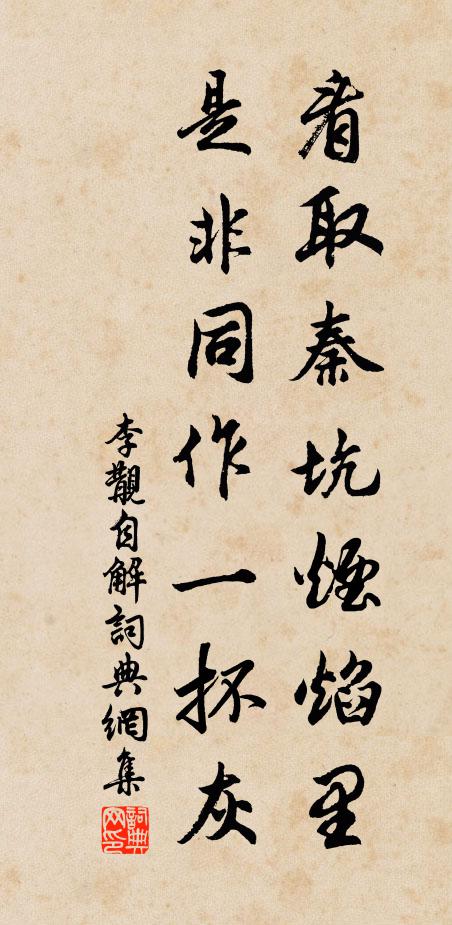 看取秦坑煙焰里
是非同作一抔灰
李觀自解詞典網集
詞典网印